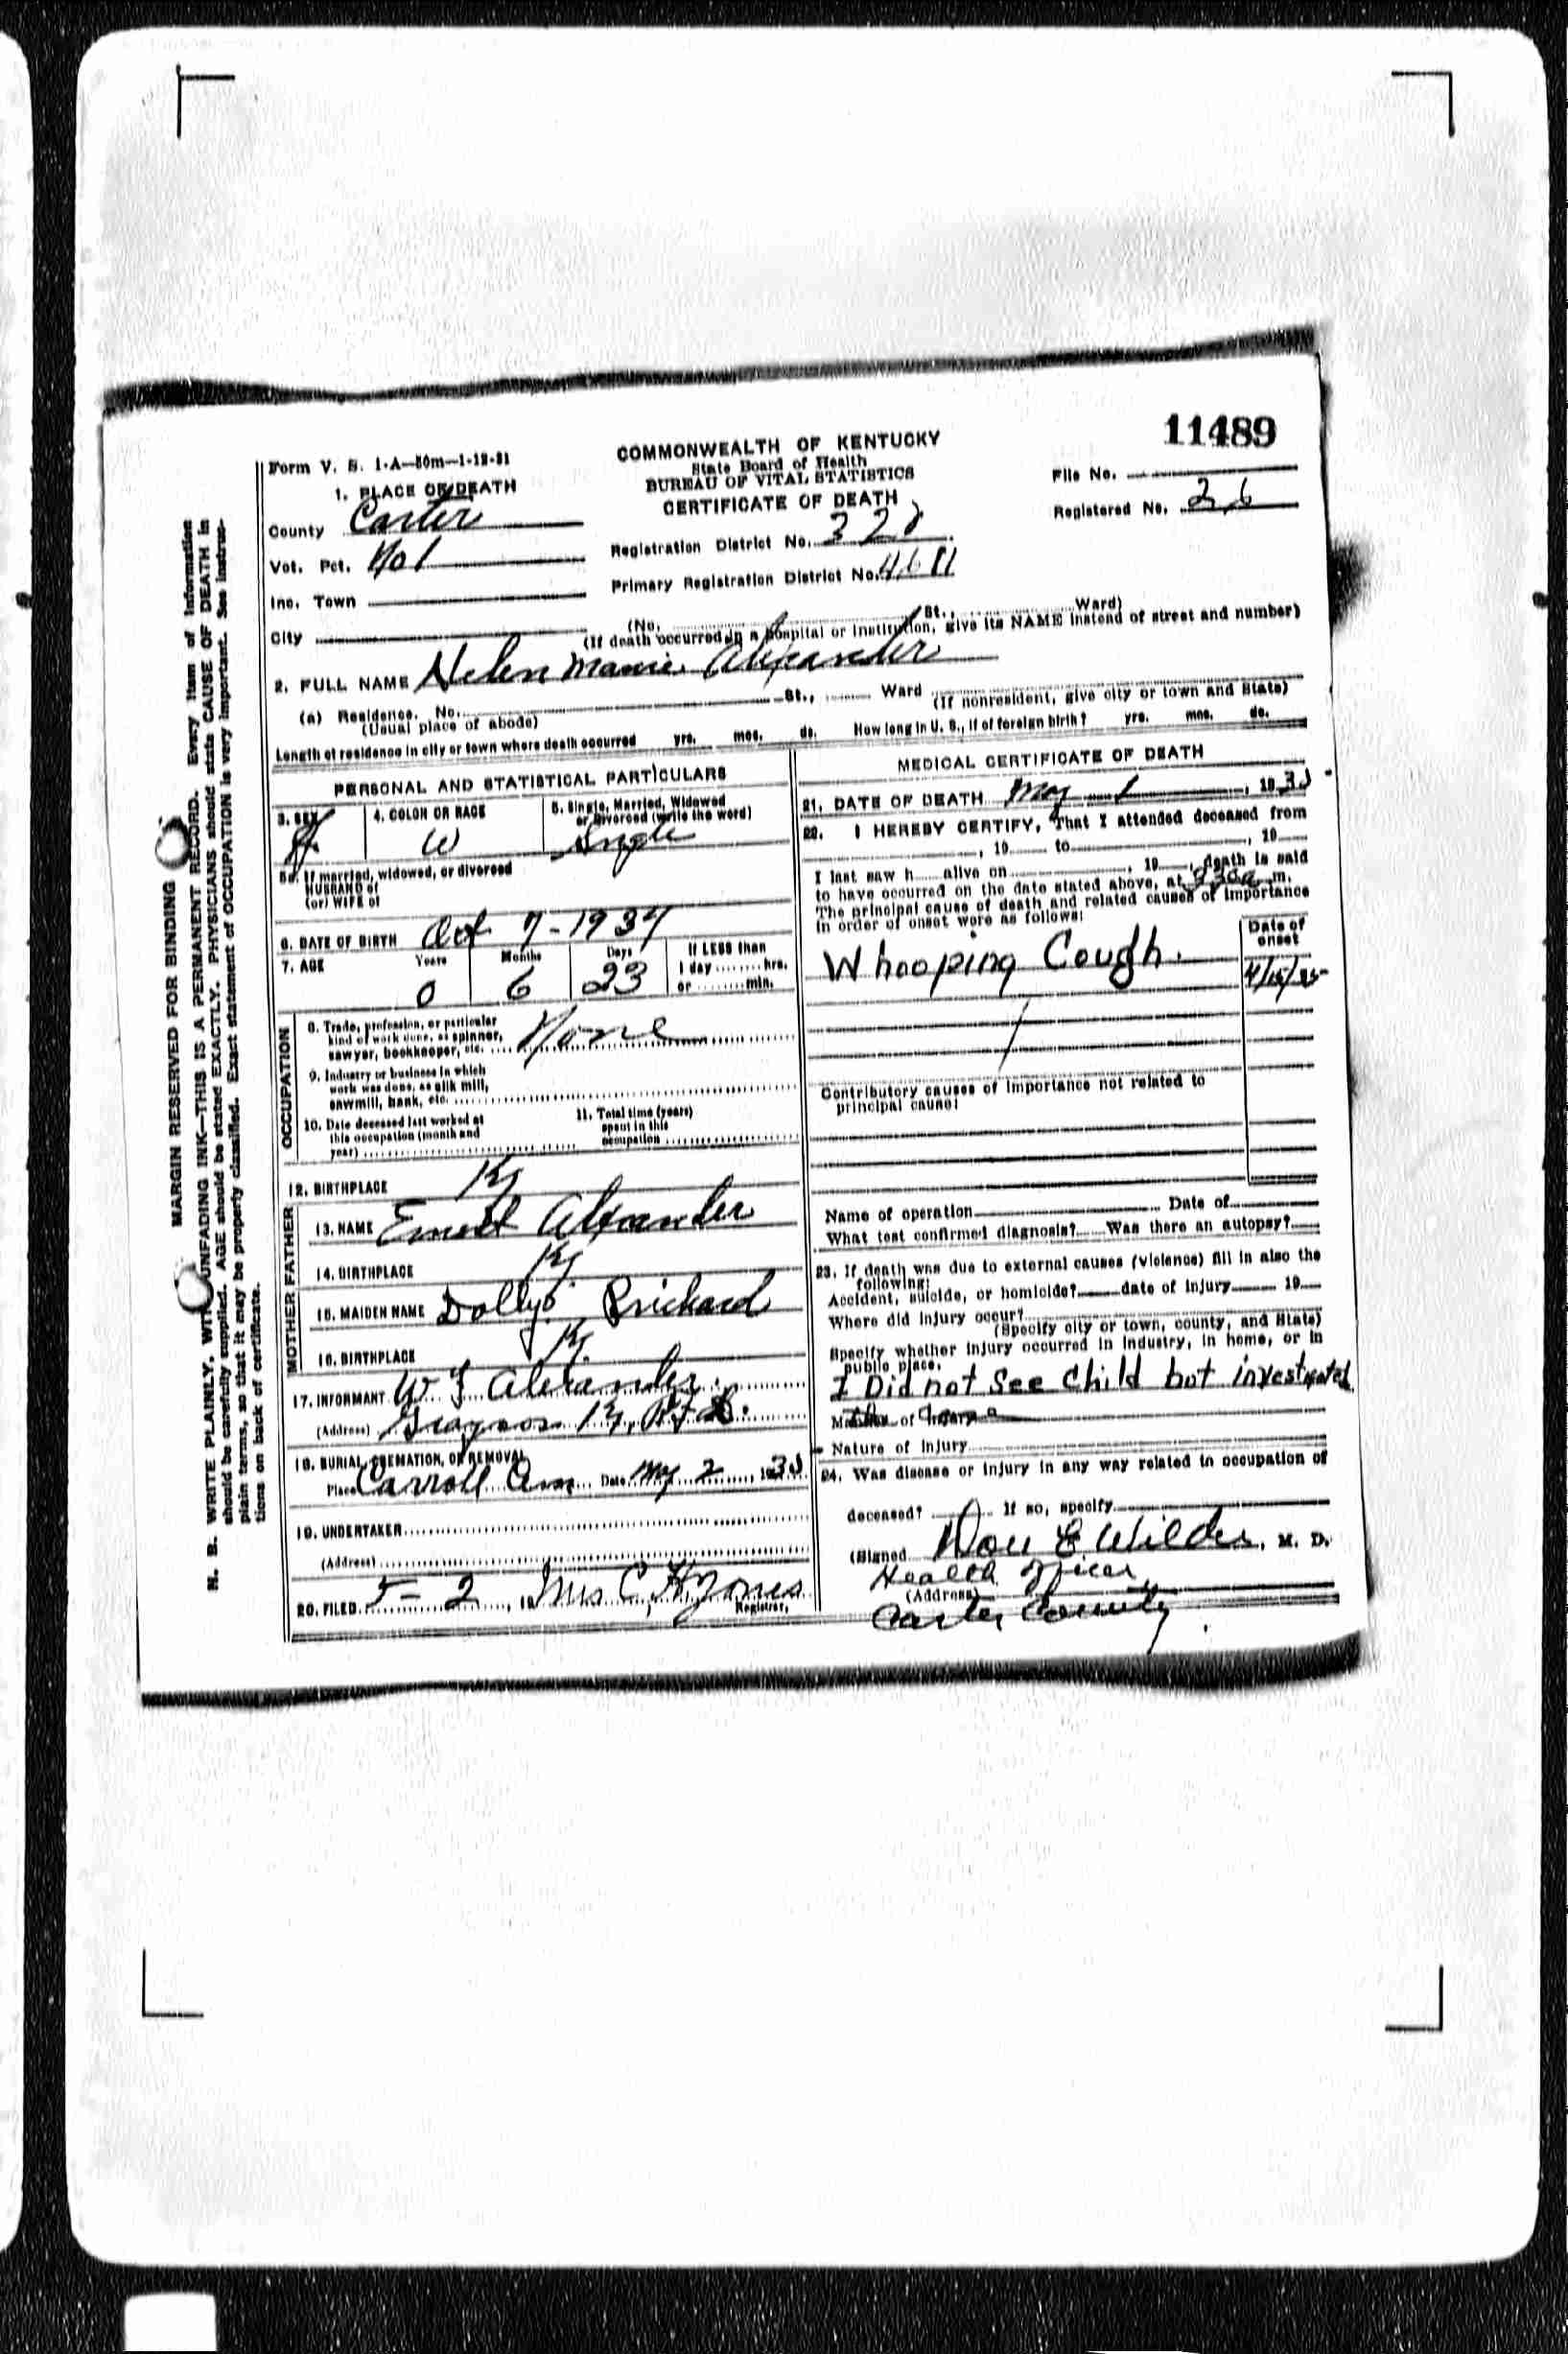 11489
Form V. S. 1-A—50m—1-12-31
COMMONWEALTH OF KENTUCKY
State Board of Health
BUREAU OF VITAL STATISTICS
CERTIFICATE OF DEATH
File No.
Registered No. 26
1. PLACE OF DEATH
County Carter
Vot. Pct. No 1
Inc. Town
City
Registration District No.
Primary Registration District No.
(No. St., Ward)
(If death occurred in a hospital or institution, give its NAME instead of street and number)
2. FULL NAME Helen Marie Alexander
(a) Residence. No. St., Ward (If nonresident, give city or town and State)
(Usual place of abode)
Length of residence in city or town where death occurred yrs. mos. ds. How long in U. S., if of foreign birth? yrs. mos. ds.
PERSONAL AND STATISTICAL PARTICULARS
3. SEX F.
4. COLOR OR RACE W
5. Single, Married, Widowed
or Divorced (write the word)
Single
5a. If married, widowed, or divorced
HUSBAND of
(or) WIFE of
6. DATE OF BIRTH Oct 7-1934
7. AGE Years Months Days If LESS than
0 6 23 1 day hrs.
or min.
OCCUPATION
8. Trade, profession, or particular
kind of work done, as spinner,
sawyer, bookkeeper, etc. None
9. Industry or business in which
work was done, as silk mill,
sawmill, bank, etc.
10. Date deceased last worked at
this occupation (month and
year)
11. Total time (years)
spent in this
occupation
12. BIRTHPLACE Ky
FATHER
13. NAME Ernest Alexander
14. BIRTHPLACE Ky
MOTHER
15. MAIDEN NAME Dolly Prichard
16. BIRTHPLACE Ky
17. INFORMANT Alexander
(Address) Grayson Ky, RFD
18. BURIAL, CREMATION, OR REMOVAL
Place Carroll Date May 2, 1935
19. UNDERTAKER
(Address)
20. FILED 5-2, 19 Mrs C, H Jones
Registrar.
MEDICAL CERTIFICATE OF DEATH
21. DATE OF DEATH May 1, 1935
22. I HEREBY CERTIFY, That I attended deceased from
, 19 to , 19
I last saw h alive on , 19 , death is said
to have occurred on the date stated above, at 330a m.
The principal cause of death and related causes of importance
in order of onset were as follows:
Date of
onset
Whooping Cough. 4/15/35
Contributory causes of importance not related to
principal cause:
Name of operation Date of
What test confirmed diagnosis? Was there an autopsy?
23. If death was due to external causes (violence) fill in also the
following:
Accident, suicide, or homicide? date of injury 19
Where did injury occur?
(Specify city or town, county, and State)
Specify whether injury occurred in industry, in home, or in
public place.
I Did not See Child but investigated
Manner of injury
Nature of injury
24. Was disease or injury in any way related to occupation of
deceased? If so, specify
(Signed Don E Wilder, M. D.
Health Officer
(Address)
Carter County
MARGIN RESERVED FOR BINDING
N. B. WRITE PLAINLY, WITH UNFADING INK—THIS IS A PERMANENT RECORD. Every item of information
should be carefully supplied. AGE should be stated EXACTLY. PHYSICIANS should state CAUSE OF DEATH in
plain terms, so that it may be properly classified. Exact statement of OCCUPATION is very important. See instruc-
tions on back of certificate.